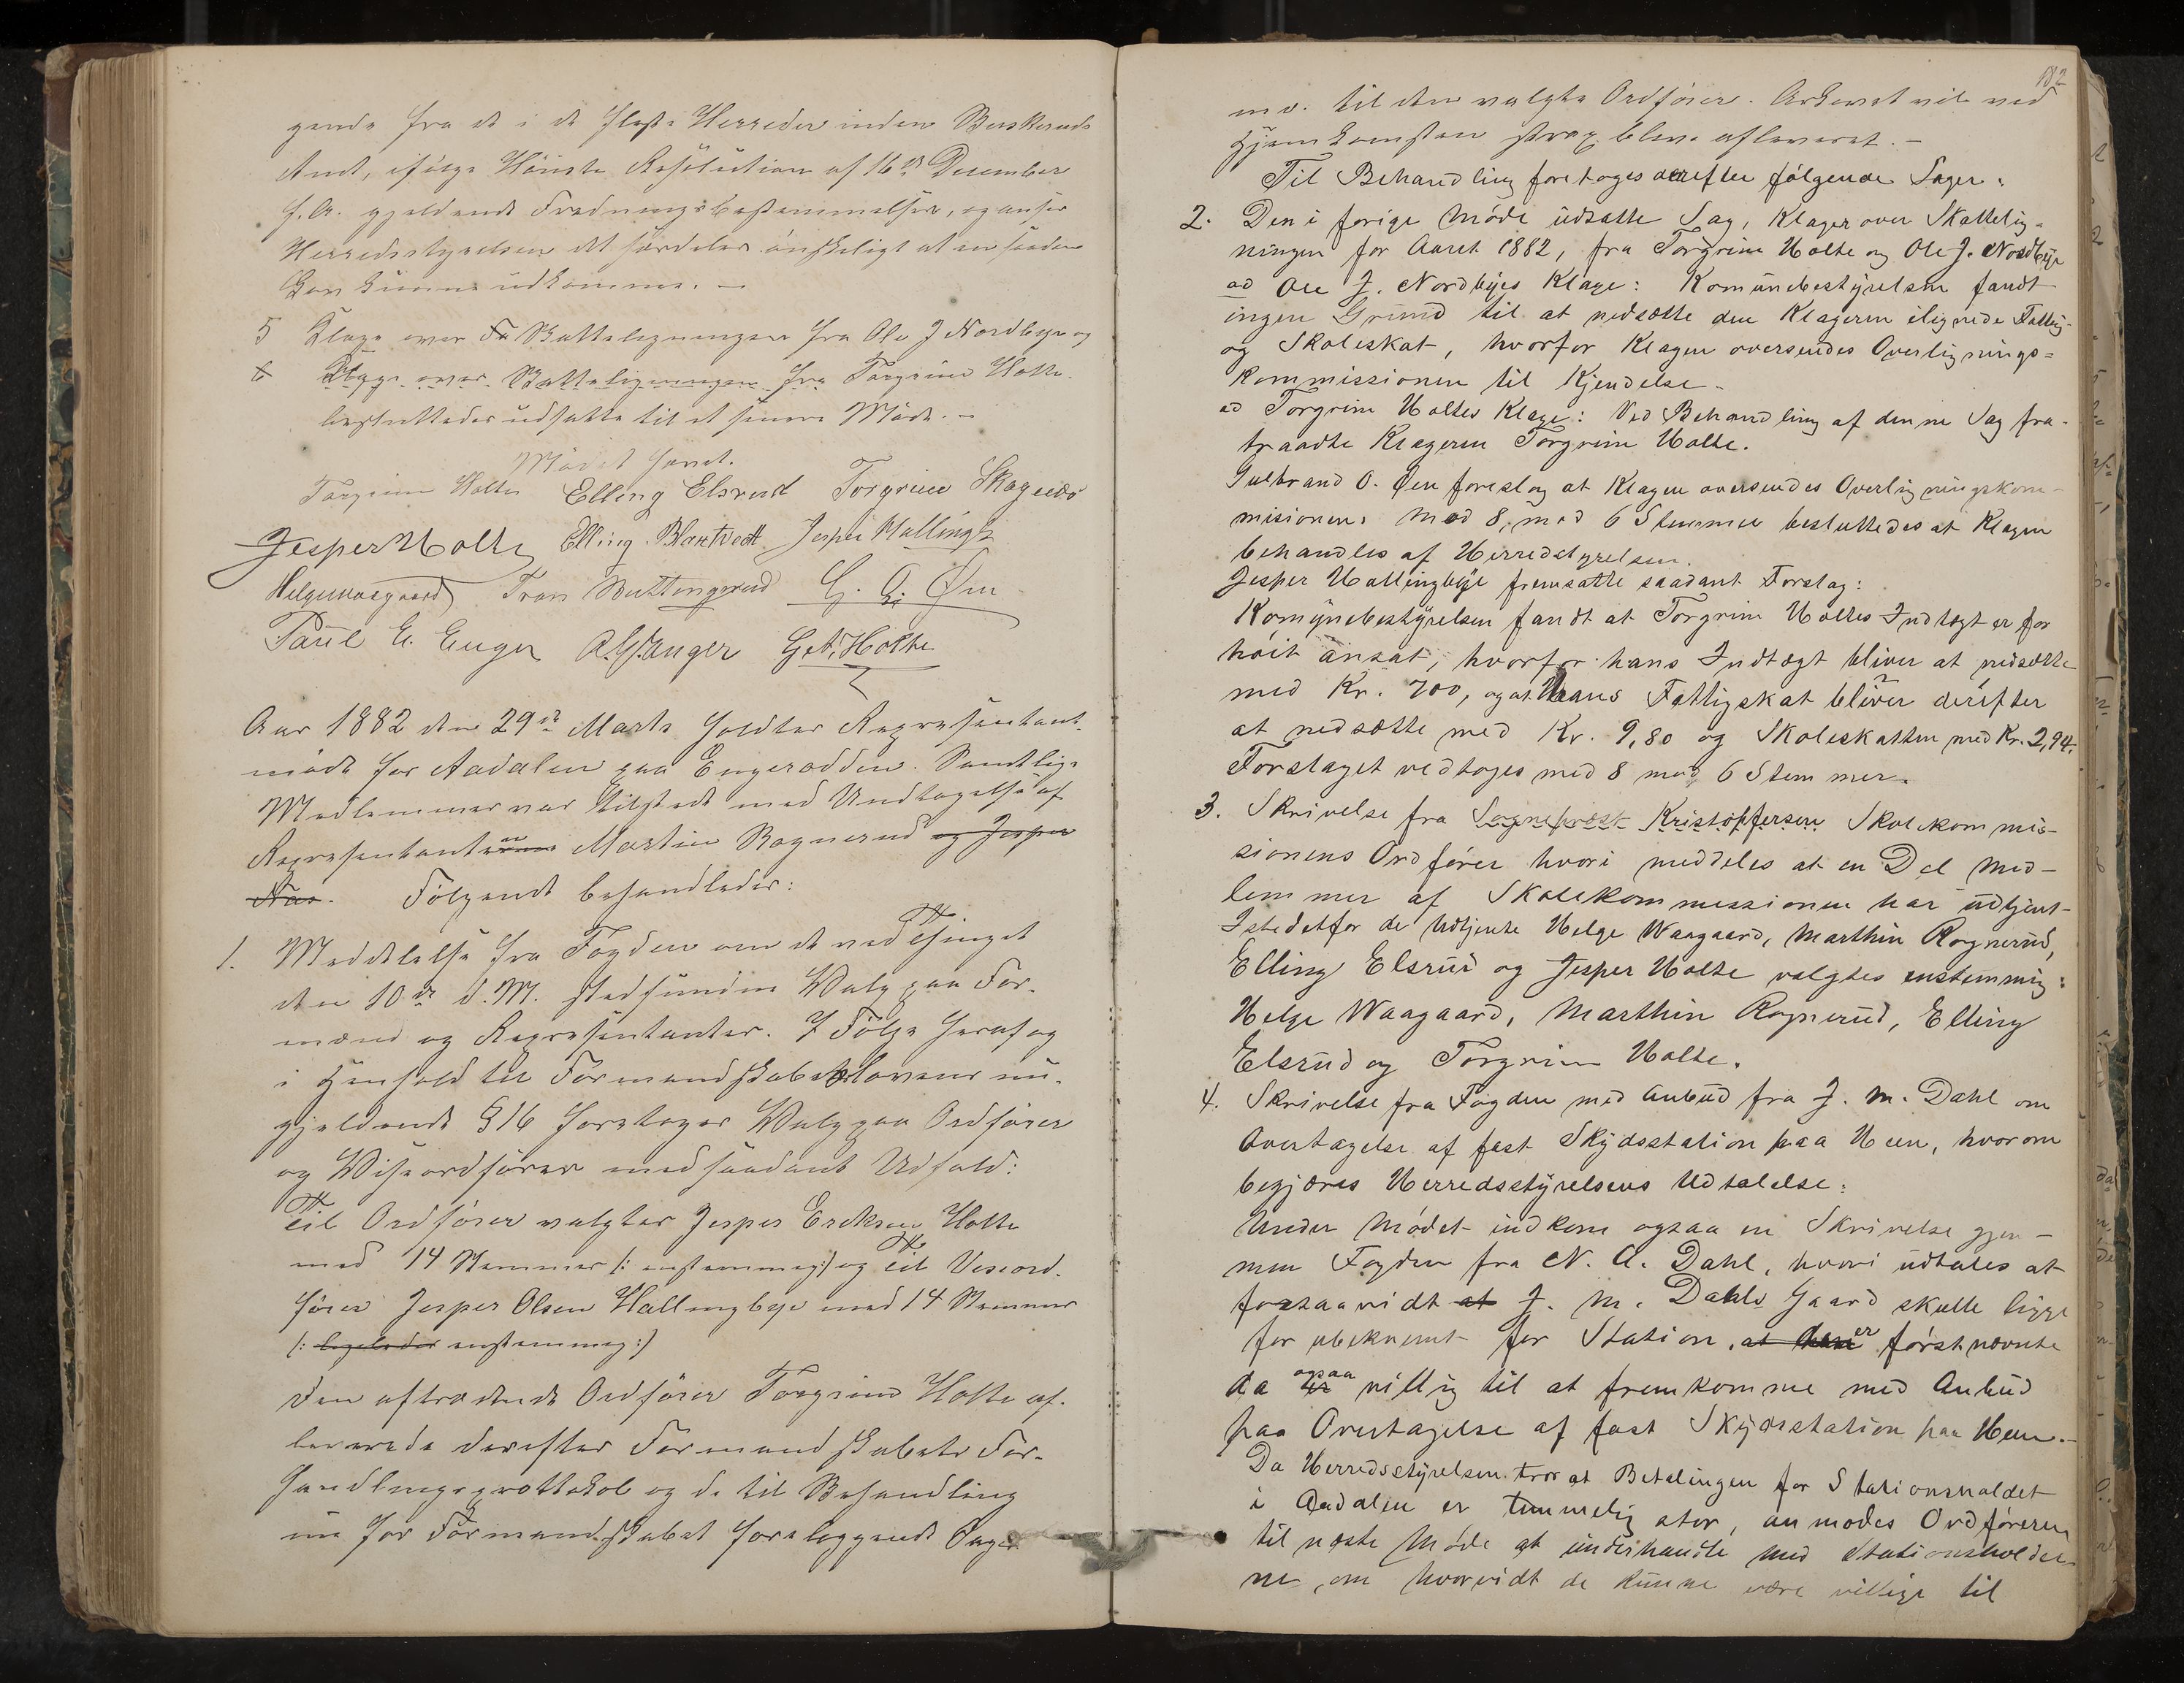 gende fra de i de fleste Herreder inden Buskeruds
Amt, ifølge Høieste Resolution af 16de December
f. A. gjeldende Fredningsbestemmelser, og anser
Herredsstyrelsen det særdeles ønskeligt at en saadan
Lov kunne udkomme. –
5 Klage over Fr Skatteligningen fra Ole J Nordbye og
6 Klage over Skatteligningen fra Torgrim Holte.
besluttedes udsatte til et senere Møde. –
Mødet hævet.
Torgrim Holte Elling Elsrud Torgrim Skagnæs
Jesper Holte Elling Blaktvedt Jesper Hallingby
Helge Waagaard Iver Buttingsrud G. O. Øen
Paul E. Enger A. G. Enger Gul. Holte
Aar 1882 den 29de Marts holdtes Repræsentant-
møde for Aadalen paa Engerodden. Samtlige
Medlemmer var tilstede med Undtagelse af
Repræsentanten Martin Rognerud og Jesper
Næs. Følgende behandledes:
1. Meddelelse fra Fogden om de ved Thinget
den 10de d. M. stedfundne Valg paa For-
mænd og Repræsentanter. I Følge heraf og
i Henhold til Formandskabslovens nu-
gjeldende § 16 foretoges Valg paa Ordfører
og Viseordfører med saadant Udfald:
Til Ordfører valgtes Jesper Eriksen Holte
med 14 Stemmer (: enstemmig :) og til Viseord-
fører Jesper Olsen Hallingbye med 14 Stemmer
(: ligeledes enstemmig :)
Den aftrædende Ordfører Torgrim Holte af-
leverede derefter Formandskabets For-
handlingsprottokol og de til Behandling
nu for Formandskabet foreliggende Sager
182
m. v. til den valgte Ordfører. Arkivet vil ved
Hjemkomsten strax blive afleveret. –
Til Behandling foretoges derefter følgende Sager:
2. Den i forige Møde udsatte Sag, Klager over Skattelig-
ningen for Aaret 1882, fra Torgrim Holte og Ole J. Nordbye
ad Ole J. Nordbyes Klage: Komunebestyrelsen fandt
ingen Grund til at nedsætte den Klageren ilignede Fattig-
og Skoleskat, hvorfor Klagen oversendes Overlignings-
kommissionen til Kjendelse.
ad Torgrim Holtes Klage: Ved Behandling af denne Sag fra-
traadte Klageren Torgrim Holte.
Gulbrand O. Øen foreslog at Klagen oversendes Overligningskom-
misionen. Med 8 mod 6 Stemmer besluttedes at Klagen
behandles af Herredstyrelsen.
Jesper Hallingbye fremsatte saadant Forslag:
Komunebestyrelsen fandt at Torgrim Holtes Indtægt er for
høit ansat, hvorfor hans Indtægt bliver at nedsætte
med Kr. 700, og at hans Fattigskat bliver derefter
at nedsætte med Kr. 9,80 og Skoleskatten med Kr. 2,94.
Forslaget vedtoges med 8 mod 6 Stemmer.
3. Skrivelse fra Sogneprest Kristopfersen Skolekommis-
sionens Ordfører hvori meddeles at en Del Med-
lemmer af Skolekommissionen har udtjent-
Istedetfor de udtjente Helge Waagaard, Marthin Rognerud,
Elling Elsrud og Jesper Holte valgtes enstemmig:
Helge Waagaard, Marthin Rognerud, Elling
Elsrud og Torgrim Holte.
4. Skrivelse fra Fogden med Anbud fra J. M. Dahl om
Overtagelse af fast Skydsstation paa Heen, hvorom
begjæres Herredsstyrelsens Udtalelse:
Under Mødet indkom ogsaa en Skrivelse gjen-
nem Fogden fra N. A. Dahl, hvori udtales at
forsaavidt at J. M. Dahls Gaard skulle ligge
for ubekvemt for Station, at han er førstnævnte
da er ogsaa villig til at fremkomme med Anbud
paa Overtagelse af fast Skydsstation paa Heen. –
Da Herredsstyrelsen tror at Betalingen for Stationsholdet
i Aadalen er temmelig stor, anmodes Ordføreren
til næste Møde at underhandle med Stationsholder-
ne, om hvorvidt de kunne være villige til